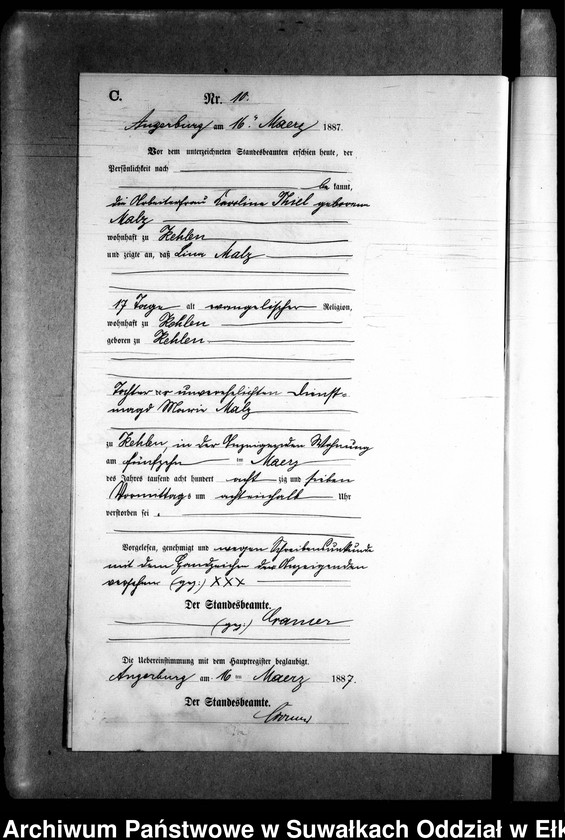 C.
Nr. 10.
Angerburg am 16ten Maerz 1887.
Vor dem unterzeichneten Standesbeamten erschien heute, der
Persönlichkeit nach
be kannt,
die Arbeiterfrau Karoline Thiel geborene
Malz
wohnhaft zu Kehlen
und zeigte an, daß Lina Malz
17 Tage alt evangelischer Religion,
wohnhaft zu Kehlen
geboren zu Kehlen
Tochter der unverehelichten Dienst-
magd Marie Malz
zu Kehlen, in der Anzeigenden Wohnung
am fünfzehn ten Maerz
des Jahres tausend acht hundert acht zig und sieben
Vormittags um achteinhalb Uhr
verstorben sei.
Vorgelesen, genehmigt und wegen Schreibensunkunde
mit dem Handzeichen der Anzeigenden
versehen (gez:) XXX
Der Standesbeamte.
(gez:) Cramer
Die Uebereinstimmung mit dem Hauptregister beglaubigt.
Angerburg am 16ten Maerz 1887.
Der Standesbeamte.
Cramer
Archiwum Państwowe w Suwałkach Oddział w Ełk